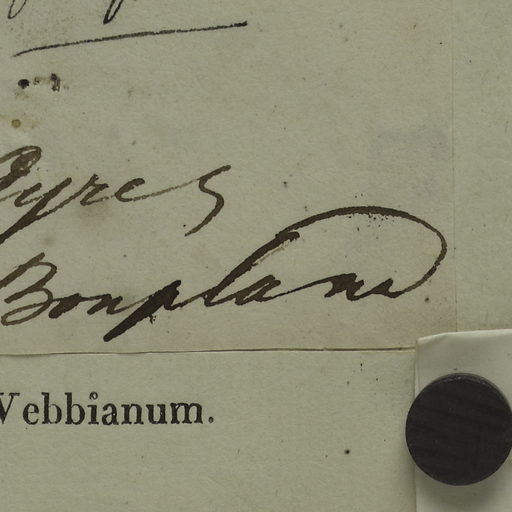 Ayres
Bonpland
Webbianum.